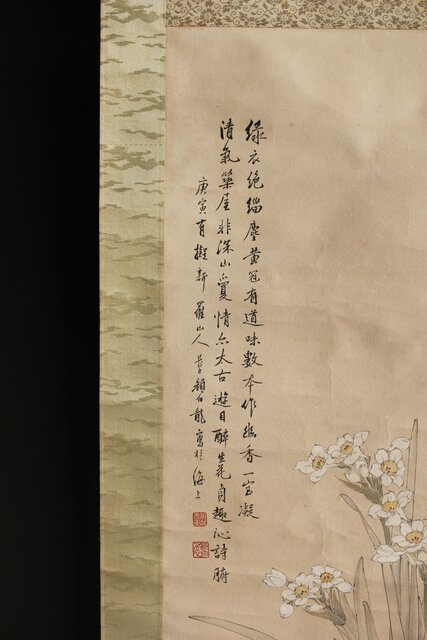 綠衣絕緇塵黃冠有道味數本作幽香一室凝
清氣築屋非深山爰情亦太古遊目醉生花貞趣沁詩脾
庚寅 擬新羅山人 顏伯龍寫於海上